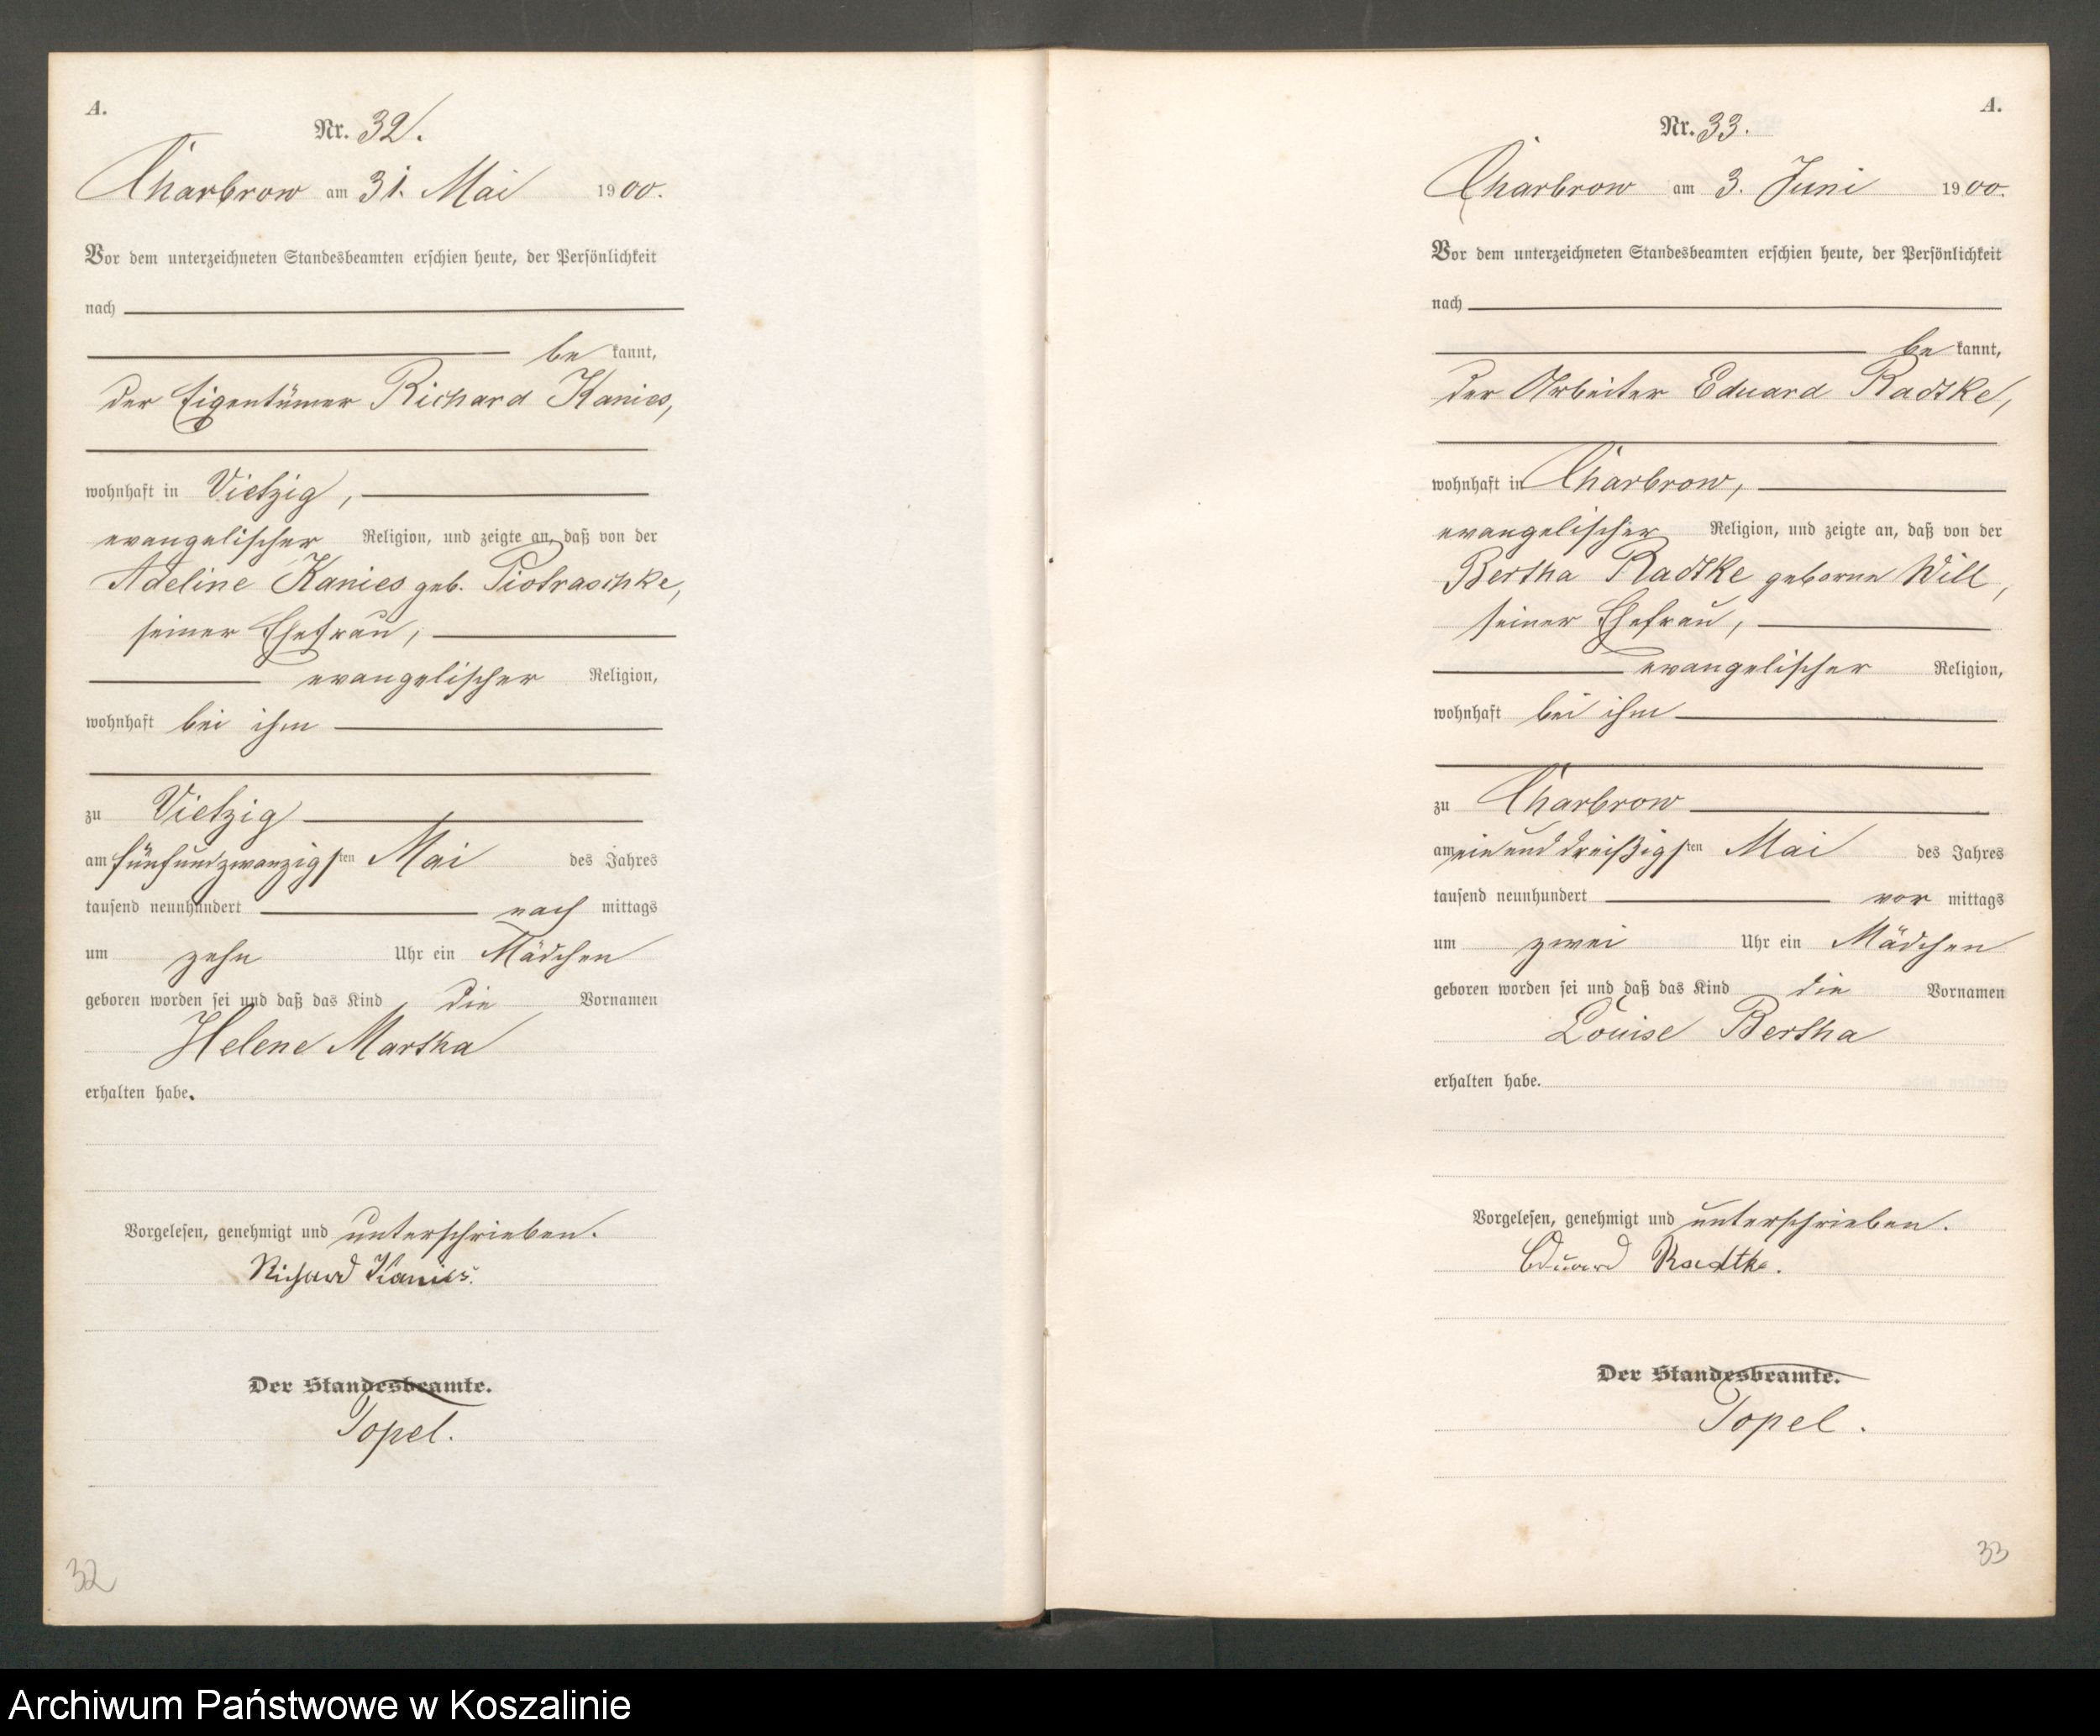 A.
Nr. 32.
Charbrow am 31. Mai 1900.
Vor dem unterzeichneten Standesbeamten erschien heute, der Persönlichkeit
nach
be kannt,
der Eigentümer Richard Kanies,
wohnhaft in Vietzig,
evangelischer Religion, und zeigte an, daß von der
Adeline Kanies geb. Piotraschke,
seiner Ehefrau,
evangelischer Religion,
wohnhaft bei ihm
zu Vietzig
am fünfundzwanzigsten Mai des Jahres
tausend neunhundert nach mittags
um zehn Uhr ein Mädchen
geboren worden sei und daß das Kind die Vornamen
Helene Martha
erhalten habe.
Vorgelesen, genehmigt und unterschrieben.
Richard Kanies.
Der Standesbeamte.
Topel.
32
A.
Nr. 33.
Charbrow am 3. Juni 1900.
Vor dem unterzeichneten Standesbeamten erschien heute, der Persönlichkeit
nach
be kannt,
der Arbeiter Eduard Radtke,
wohnhaft in Charbrow,
evangelischer Religion, und zeigte an, daß von der
Bertha Radtke geborne Will,
seiner Ehefrau,
evangelischer Religion,
wohnhaft bei ihm
zu Charbrow
am einunddreißigsten Mai des Jahres
tausend neunhundert vor mittags
um zwei Uhr ein Mädchen
geboren worden sei und daß das Kind die Vornamen
Louise Bertha
erhalten habe.
Vorgelesen, genehmigt und unterschrieben.
Eduard Radtke.
Der Standesbeamte.
Topel.
33
Archiwum Państwowe w Koszalinie